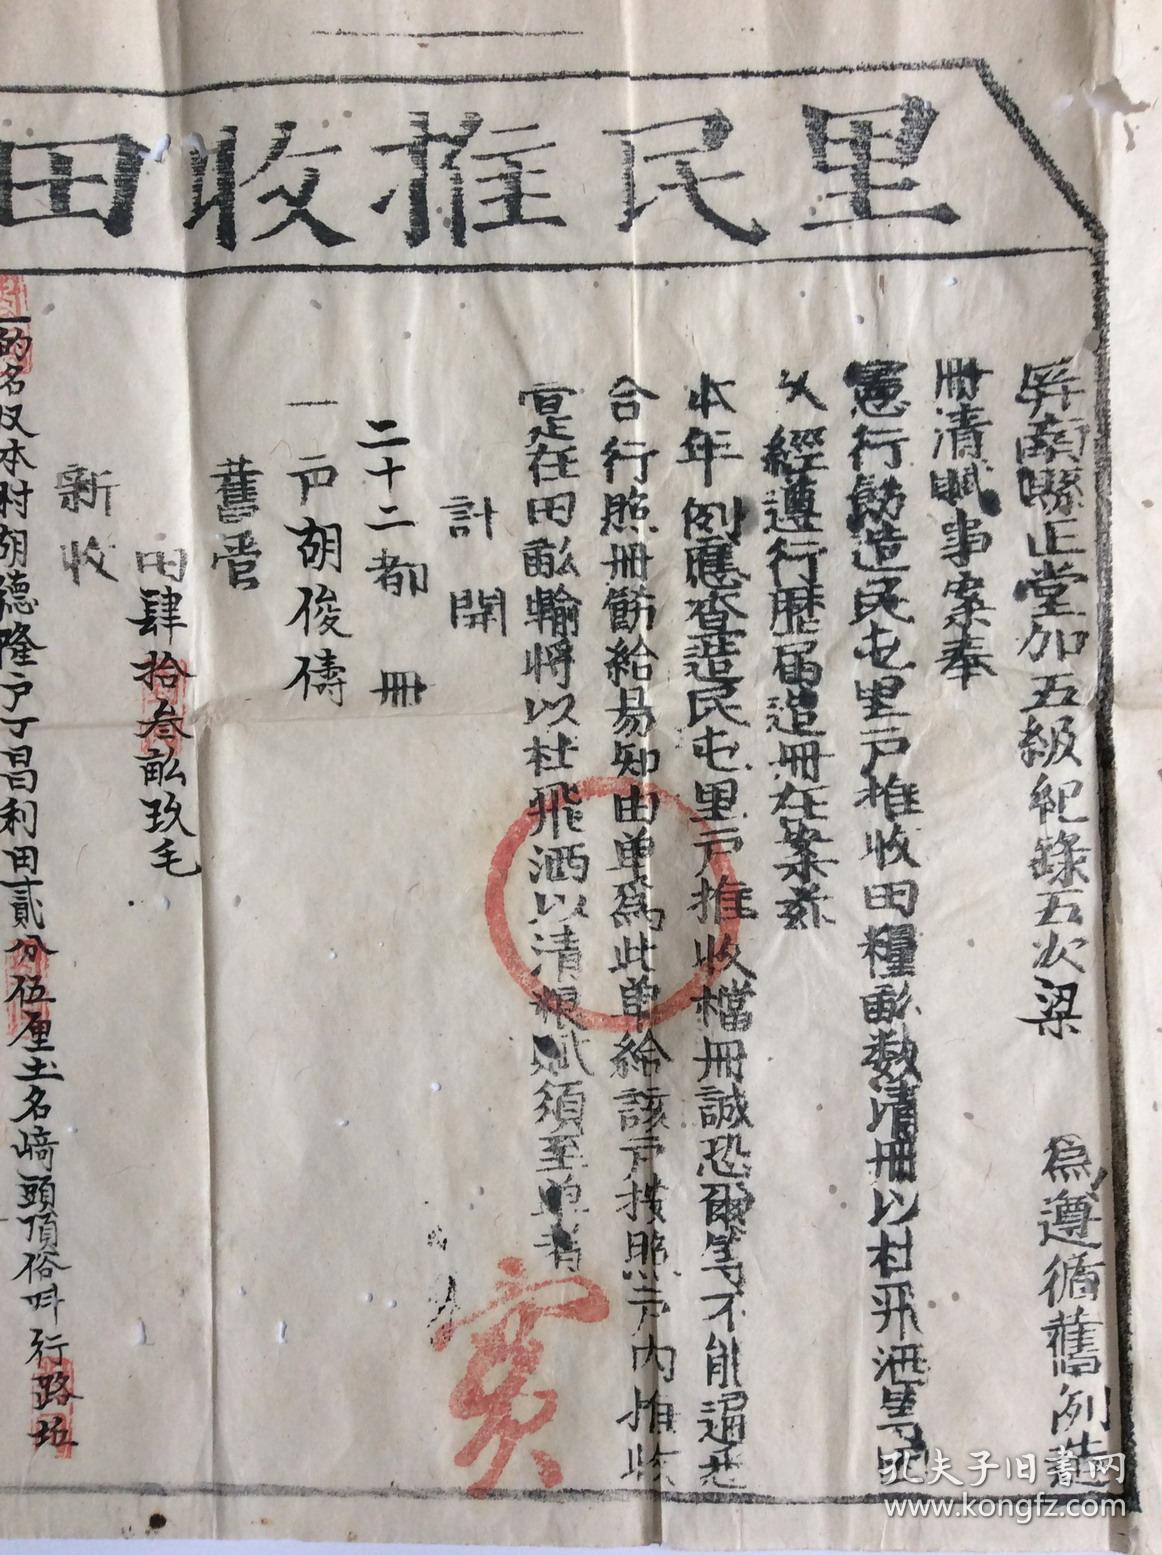 里民推收田
屏南縣正堂加五級紀錄五次梁　為遵循舊例造
冊清賦事案奉
憲行飭造民屯里戶推收田糧畝数清冊以杜飛洒等
經遵行歷屆造冊在案茲
本年例應查造民屯里戶推收檔冊誠恐爾等不能週悉
合行照冊飭給易知由單為此单給該戶按照戶內推收
寔在田畝輸將以杜飛洒以清粮賦須至单者
計開
二十二都　冊
一戶胡俊儔
舊管
田肆拾叁畝玖毛
新收
一的名収本村胡德隆户丁昌利田貳分伍厘土名﨑頭頂俗叫行路坵
孔夫子旧書网
www.kongfz.com